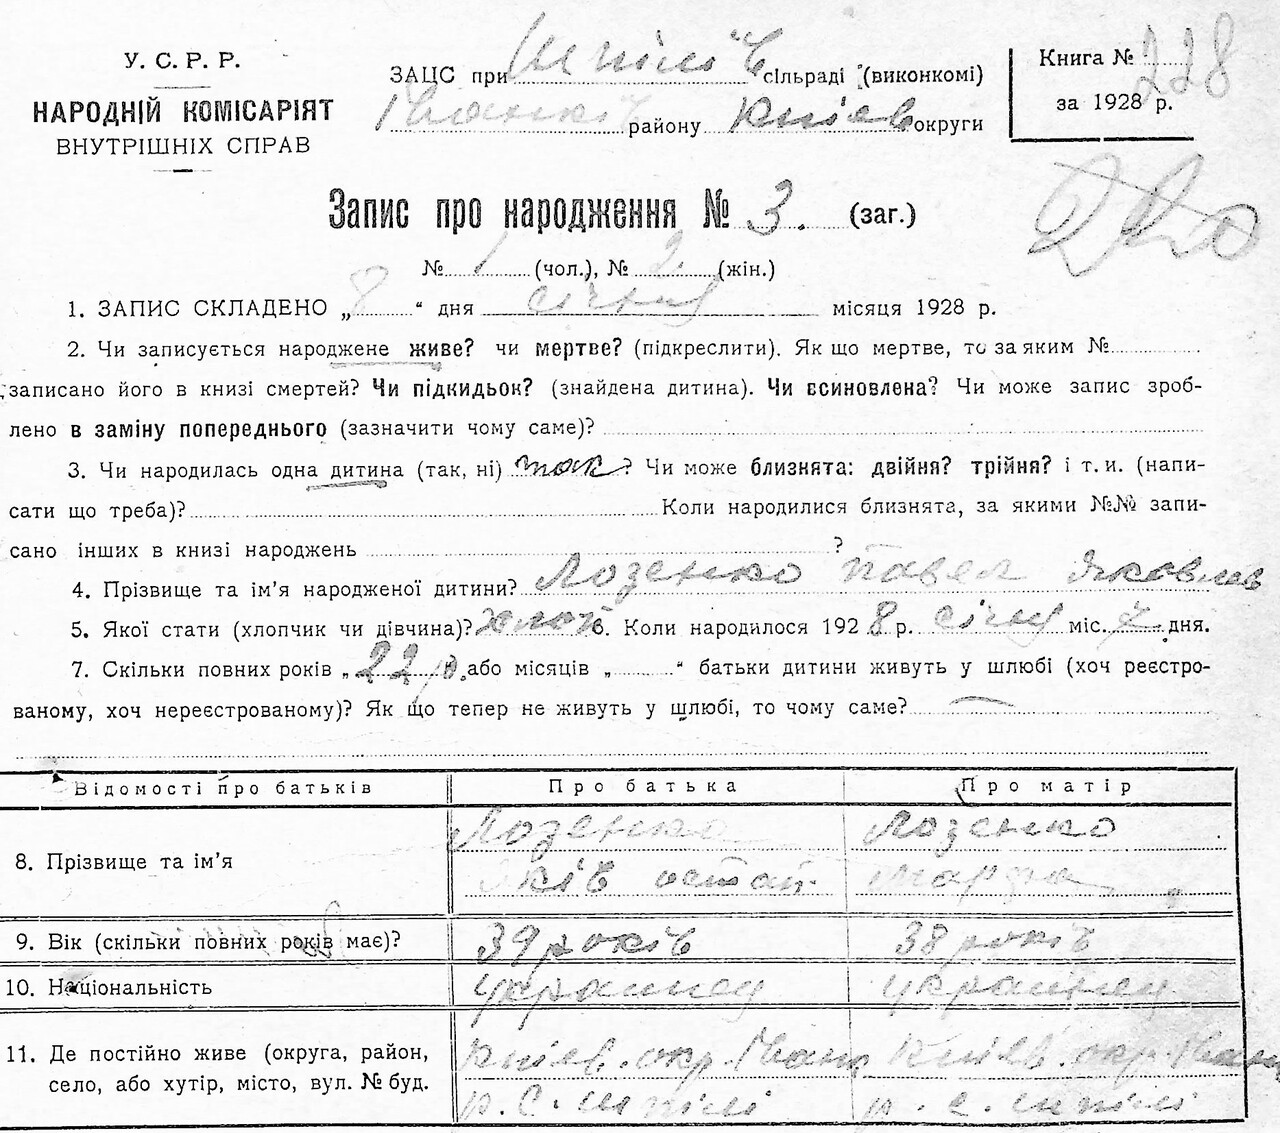 У. С. Р. Р.
НАРОДНІЙ КОМІСАРІЯТ
ВНУТРІШНІХ СПРАВ
ЗАЦС при Шпилів сільраді (виконкомі)
Іванків району Київ округи
Книга № 228
за 1928 р.
220
Запис про народження № 3. (заг.)
№ 1 (чол.), № 2 (жін.)
1. ЗАПИС СКЛАДЕНО „ 8 “ дня січня місяця 1928 р.
2. Чи записується народжене живе? чи мертве? (підкреслити). Як що мертве, то за яким №
записано його в книзі смертей? Чи підкидьок? (знайдена дитина). Чи всиновлена? Чи може запис зроб-
лено в заміну попереднього (зазначити чому саме)?
3. Чи народилась одна дитина (так, ні) так? Чи може близнята: двійня? трійня? і т. и. (напи-
сати що треба)? Коли народилися близнята, за якими №№ запи-
сано інших в книзі народжень ?
4. Прізвище та ім’я народженої дитини? Лозенко Павел Яковлев
5. Якої стати (хлопчик чи дівчина)? хлоп 6. Коли народилося 1928 р. січня міс. 7 дня.
7. Скільки повних років „ 22 р. або місяців „ “ батьки дитини живуть у шлюбі (хоч реєстро-
ваному, хоч нереєстрованому)? Як що тепер не живуть у шлюбі, то чому саме? —
Відомості про батьків Про батька Про матір
8. Прізвище та ім’я Лозенко Яків Остап. Лозенко Марфа
9. Вік (скільки повних років має)? 39 років 38 років
10. Національність Украинец Украинец
11. Де постійно живе (округа, район, Киів. окр. Іванк Киів. окр. Іванк
село, або хутір, місто, вул. № буд. р. с. Шпилі р. с. Шпилі